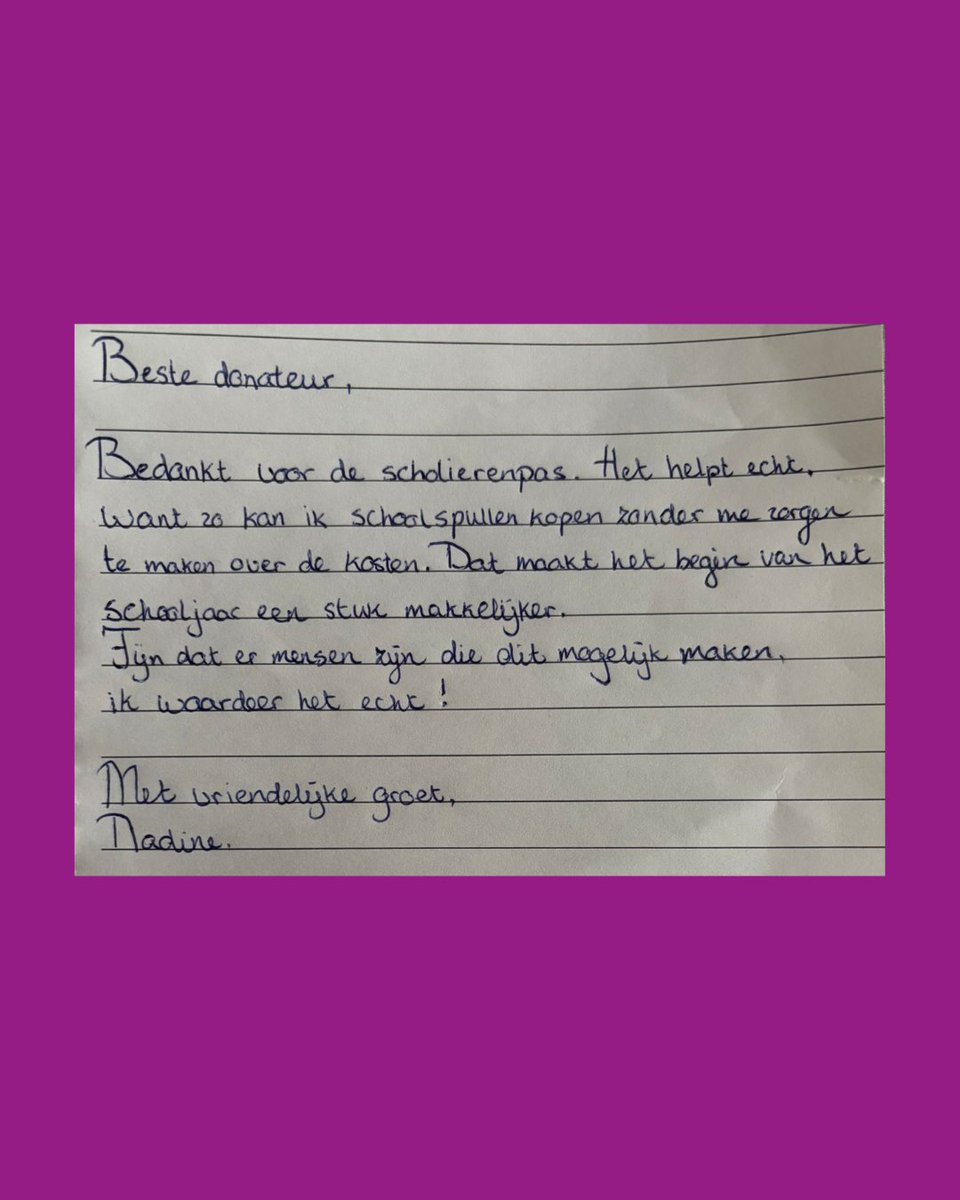 Beste donateur,
Bedankt voor de scholierenpas. Het helpt echt,
want zo kan ik schoolspullen kopen zonder me zorgen
te maken over de kosten. Dat maakt het begin van het
schooljaar een stuk makkelijker.
Fijn dat er mensen zijn die dit mogelijk maken,
ik waardeer het echt!
Met vriendelijke groet,
Nadine.